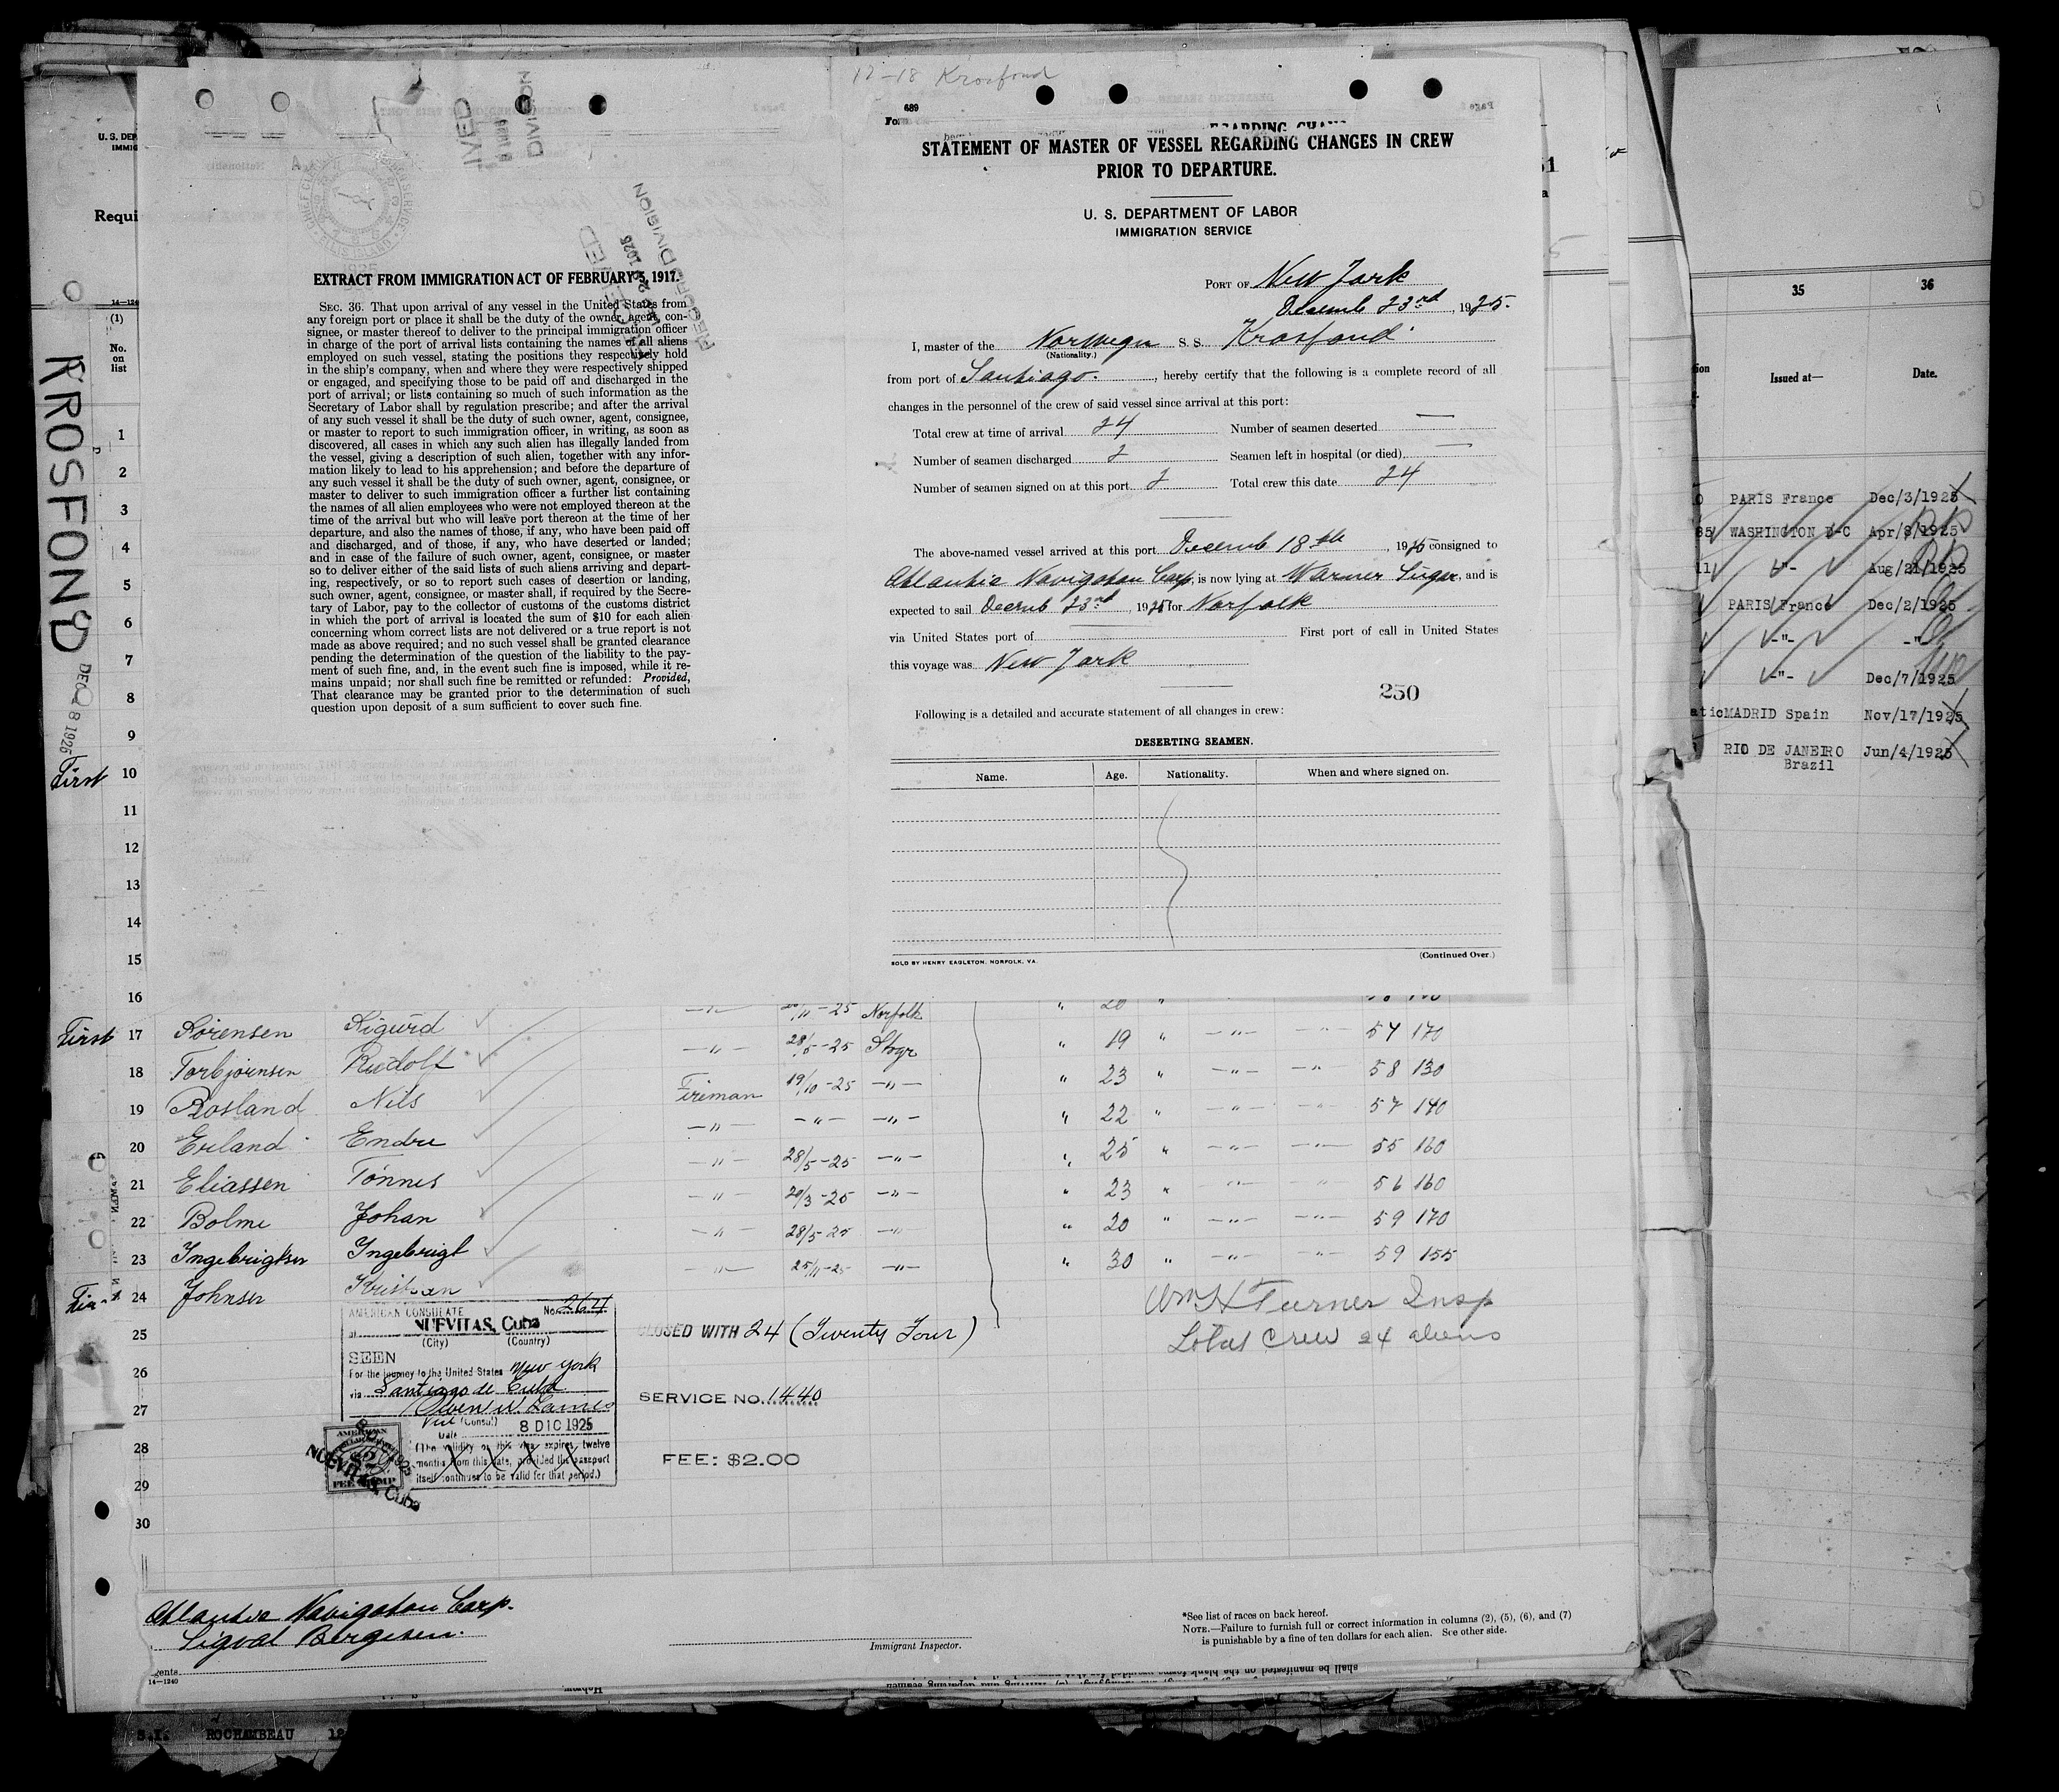 12-18 Krosfond
689
STATEMENT OF MASTER OF VESSEL REGARDING CHANGES IN CREW
PRIOR TO DEPARTURE.
U. S. DEPARTMENT OF LABOR
IMMIGRATION SERVICE
PORT OF New York
Decemb 23rd, 1925.
I, master of the Norwegn S. S. Krosfond
(Nationality.)
from port of Santiago., hereby certify that the following is a complete record of all
changes in the personnel of the crew of said vessel since arrival at this port:
Total crew at time of arrival 24 Number of seamen deserted —
Number of seamen discharged 2 Seamen left in hospital (or died) —
Number of seamen signed on at this port 2 Total crew this date 24
The above-named vessel arrived at this port Decemb 18th, 1925 consigned to
Atlantic Navigation Corp, is now lying at Warner Sugar, and is
expected to sail Decemb 23rd, 1925 for Norfolk
via United States port of First port of call in United States
this voyage was New York
250
Following is a detailed and accurate statement of all changes in crew:
DESERTING SEAMEN.
Name. Age. Nationality. When and where signed on.
SOLD BY HENRY EAGLETON, NORFOLK, VA. (Continued Over.)
EXTRACT FROM IMMIGRATION ACT OF FEBRUARY 5, 1917.
SEC. 36. That upon arrival of any vessel in the United States from
any foreign port or place it shall be the duty of the owner, agent, con-
signee, or master thereof to deliver to the principal immigration officer
in charge of the port of arrival lists containing the names of all aliens
employed on such vessel, stating the positions they respectively hold
in the ship's company, when and where they were respectively shipped
or engaged, and specifying those to be paid off and discharged in the
port of arrival; or lists containing so much of such information as the
Secretary of Labor shall by regulation prescribe; and after the arrival
of any such vessel it shall be the duty of such owner, agent, consignee,
or master to report to such immigration officer, in writing, as soon as
discovered, all cases in which any such alien has illegally landed from
the vessel, giving a description of such alien, together with any infor-
mation likely to lead to his apprehension; and before the departure of
any such vessel it shall be the duty of such owner, agent, consignee, or
master to deliver to such immigration officer a further list containing
the names of all alien employees who were not employed thereon at the
time of the arrival but who will leave port thereon at the time of her
departure, and also the names of those, if any, who have been paid off
and discharged, and of those, if any, who have deserted or landed;
and in case of the failure of such owner, agent, consignee, or master
so to deliver either of the said lists of such aliens arriving and depart-
ing, respectively, or so to report such cases of desertion or landing,
such owner, agent, consignee, or master shall, if required by the Secre-
tary of Labor, pay to the collector of customs of the customs district
in which the port of arrival is located the sum of $10 for each alien
concerning whom correct lists are not delivered or a true report is not
made as above required; and no such vessel shall be granted clearance
pending the determination of the question of the liability to the pay-
ment of such fine, and, in the event such fine is imposed, while it re-
mains unpaid; nor shall such fine be remitted or refunded: Provided,
That clearance may be granted prior to the determination of such
question upon deposit of a sum sufficient to cover such fine.
U. S. DEP
IMMIG
Requi
14—124
(1)
No.
on
list
KROSFOND
DEC 8 1925
1
2
3
4
5
6
7
8
9
First 10
11
12
13
14
15
16
-25 Norfolk " 20 "
First 17 Sorensen Sigurd —"— 28/5-25 Stvgr " 19 " —"— —"— 57 170
18 Torbjornsen Rudolf Fireman 19/10-25 —"— " 23 " —"— —"— 58 130
19 Rosland Nils —"— —"— —"— " 22 " —"— —"— 57 140
20 Erland Endre —"— 28/5-25 —"— " 25 " —"— —"— 55 160
21 Eliassen Tonnes —"— 20/3-25 —"— " 23 " —"— —"— 56 160
22 Bolme Johan —"— 28/5-25 —"— " 20 " —"— —"— 59 170
23 Ingebrigtsen Ingebrigt —"— 25/11-25 —"— " 30 " —"— —"— 59 155
First 24 Johnsen Kristian
25
26
27
28
29
30
AMERICAN CONSULATE No. 264
at NUEVITAS, Cuba
(City) (Country)
SEEN
For the journey to the United States New York
via Santiago de Cuba
Vice (Consul)
Date 8 DIC 1925
(The validity of this visa expires twelve
months from this date, provided the passport
itself continues to be valid for that period.)
NUEVITAS, Cuba
CLOSED WITH 24 (Twenty Four)
SERVICE NO. 1440
FEE: $2.00
Wm H Turner Insp
Total Crew 24 aliens
Atlantic Navigation Corp.
Sigval Bergesen.
gents
14—1240
Immigrant Inspector.
*See list of races on back hereof.
NOTE.—Failure to furnish full or correct information in columns (2), (5), (6), and (7)
is punishable by a fine of ten dollars for each alien. See other side.
S.I. ROCHAMBEAU
35 36
Issued at— Date.
PARIS France Dec/3/1925
WASHINGTON D-C Apr/8/1925
-"- Aug/21/1925
PARIS/France Dec/2/1925
-"- -"-
-"- Dec/7/1925
MADRID Spain Nov/17/1925
RIO DE JANEIRO Jun/4/1925
Brazil